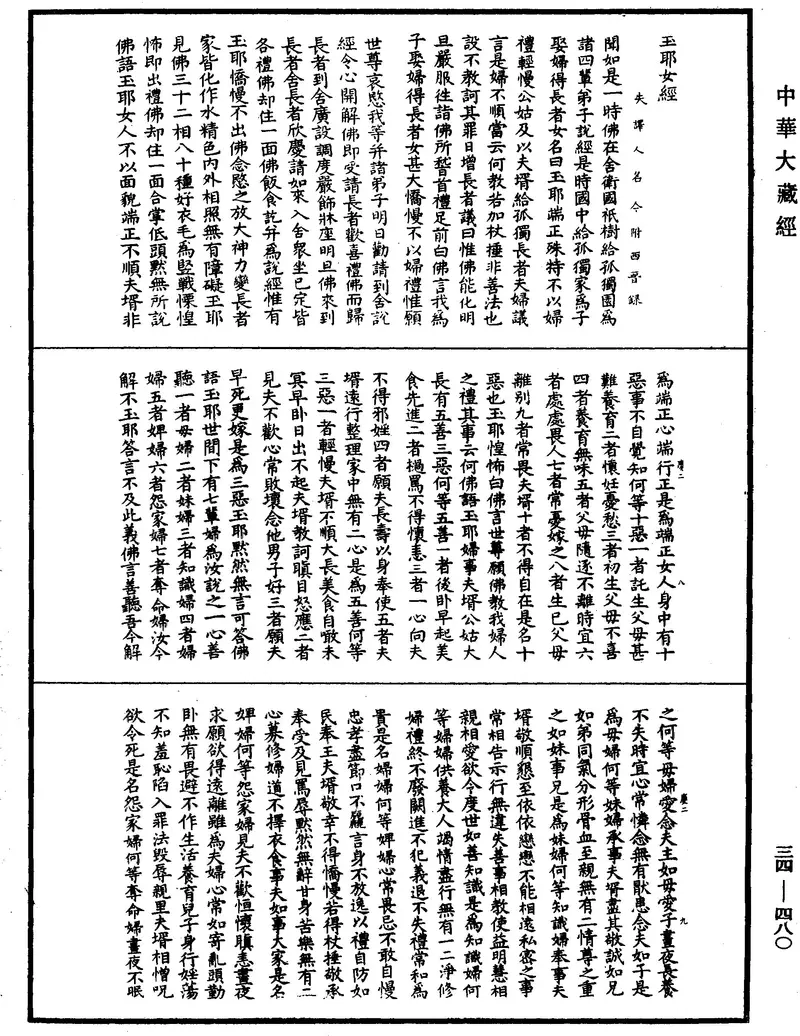 中華大藏經
玉耶女經
失譯人名今附西晉錄
聞如是一時佛在舍衛國祇樹給孤獨園為
諸四輩弟子說經是時國中給孤獨家為子
娶婦得長者女名曰玉耶端正殊特不以婦
禮輕慢公姑及以夫壻給孤獨長者夫婦議
言是婦不順當云何教若加杖捶非善法也
設不教訶其罪日增長者議曰惟佛能化明
旦嚴服往詣佛所稽首禮足前白佛言我為
子娶婦得長者女甚大憍慢不以婦禮惟願
世尊哀愍我等并諸弟子明日勸請到舍說
經令心開解佛即受請長者歡喜禮佛而歸
長者到舍廣設調度嚴飾牀座明旦佛來到
長者舍長者欣慶請如來入舍眾坐已定皆
各禮佛却住一面佛飯食訖并為說經惟有
玉耶憍慢不出佛念愍之放大神力變長者
家皆化作水精色內外相照無有障礙玉耶
見佛三十二相八十種好衣毛為竪戰慄惶
怖即出禮佛却住一面合掌低頭默無所說
佛語玉耶女人不以面貌端正不順夫壻非
為端正心端行正是為端正女人身中有十
惡事不自覺知何等十惡一者託生父母甚
難養育二者懷妊憂愁三者初生父母不喜
四者養育無味五者父母隨逐不離時宜六
者處處畏人七者常憂嫁之八者生已父母
離別九者常畏夫壻十者不得自在是名十
惡也玉耶惶怖白佛言世尊願佛教我婦人
之禮其事云何佛語玉耶婦事夫壻公姑大
長有五善三惡何等五善一者後卧早起美
食先進二者撾罵不得懷恚三者一心向夫
不得邪婬四者願夫長壽以身奉使五者夫
壻遠行整理家中無有二心是為五善何等
三惡一者輕慢夫壻不順大長美食自噉未
冥早卧日出不起夫壻教訶瞋目怒應二者
見夫不歡心常敗壞念他男子好三者願夫
早死更嫁是為三惡玉耶默然無言可答佛
語玉耶世間下有七輩婦為汝說之一心善
聽一者母婦二者妹婦三者知識婦四者婦
婦五者婢婦六者怨家婦七者奪命婦汝今
解不玉耶答言不及此義佛言善聽吾今解
之何等母婦愛念夫主如母愛子晝夜長養
不失時宜心常憐念無有猒患念夫如子是
為母婦何等妹婦承事夫壻盡其敬誠如兄
如弟同氣分形骨血至親無有二情尊之重
之如妹事兄是為妹婦何等知識婦奉事夫
壻敬順懇至依依戀戀不能相遠私密之事
常相告示行無違失善事相教使益明慧相
親相愛欲令度世如善知識是為知識婦何
等婦婦供養大人竭情盡行無有一二淨修
婦禮終不廢闕進不犯義退不失禮常和為
貴是名婦婦何等婢婦心常畏忌不敢自慢
忠孝盡節口不麤言身不放逸以禮自防如
民奉王夫壻敬幸不得憍慢若得杖捶敬承
奉受及見罵辱默然無辭甘身苦樂無有二
心募修婦道不擇衣食事夫如事大家是名
婢婦何等怨家婦見夫不歡恒懷瞋恚晝夜
求願欲得遠離雖為夫婦心常如寄亂頭勤
卧無有畏避不作生活養育兒子身行婬蕩
不知羞恥陷入罪法毀辱親里夫壻相憎呪
欲令死是名怨家婦何等奪命婦晝夜不眠
三四—四八〇